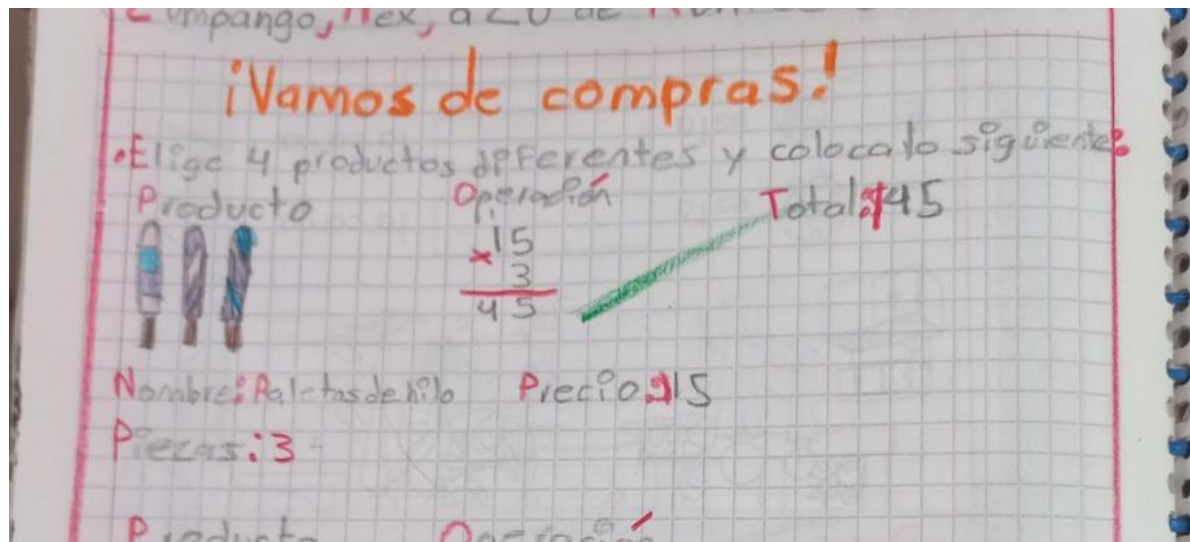 umpango, Mex, a 20 de
¡Vamos de compras!
•Elige 4 productos diferentes y coloca lo siguiente:
Producto Operación Total:$45
x15
3
45
Nombre: Paletas de hilo Precio:$15
Piezas:3
Producto Operación